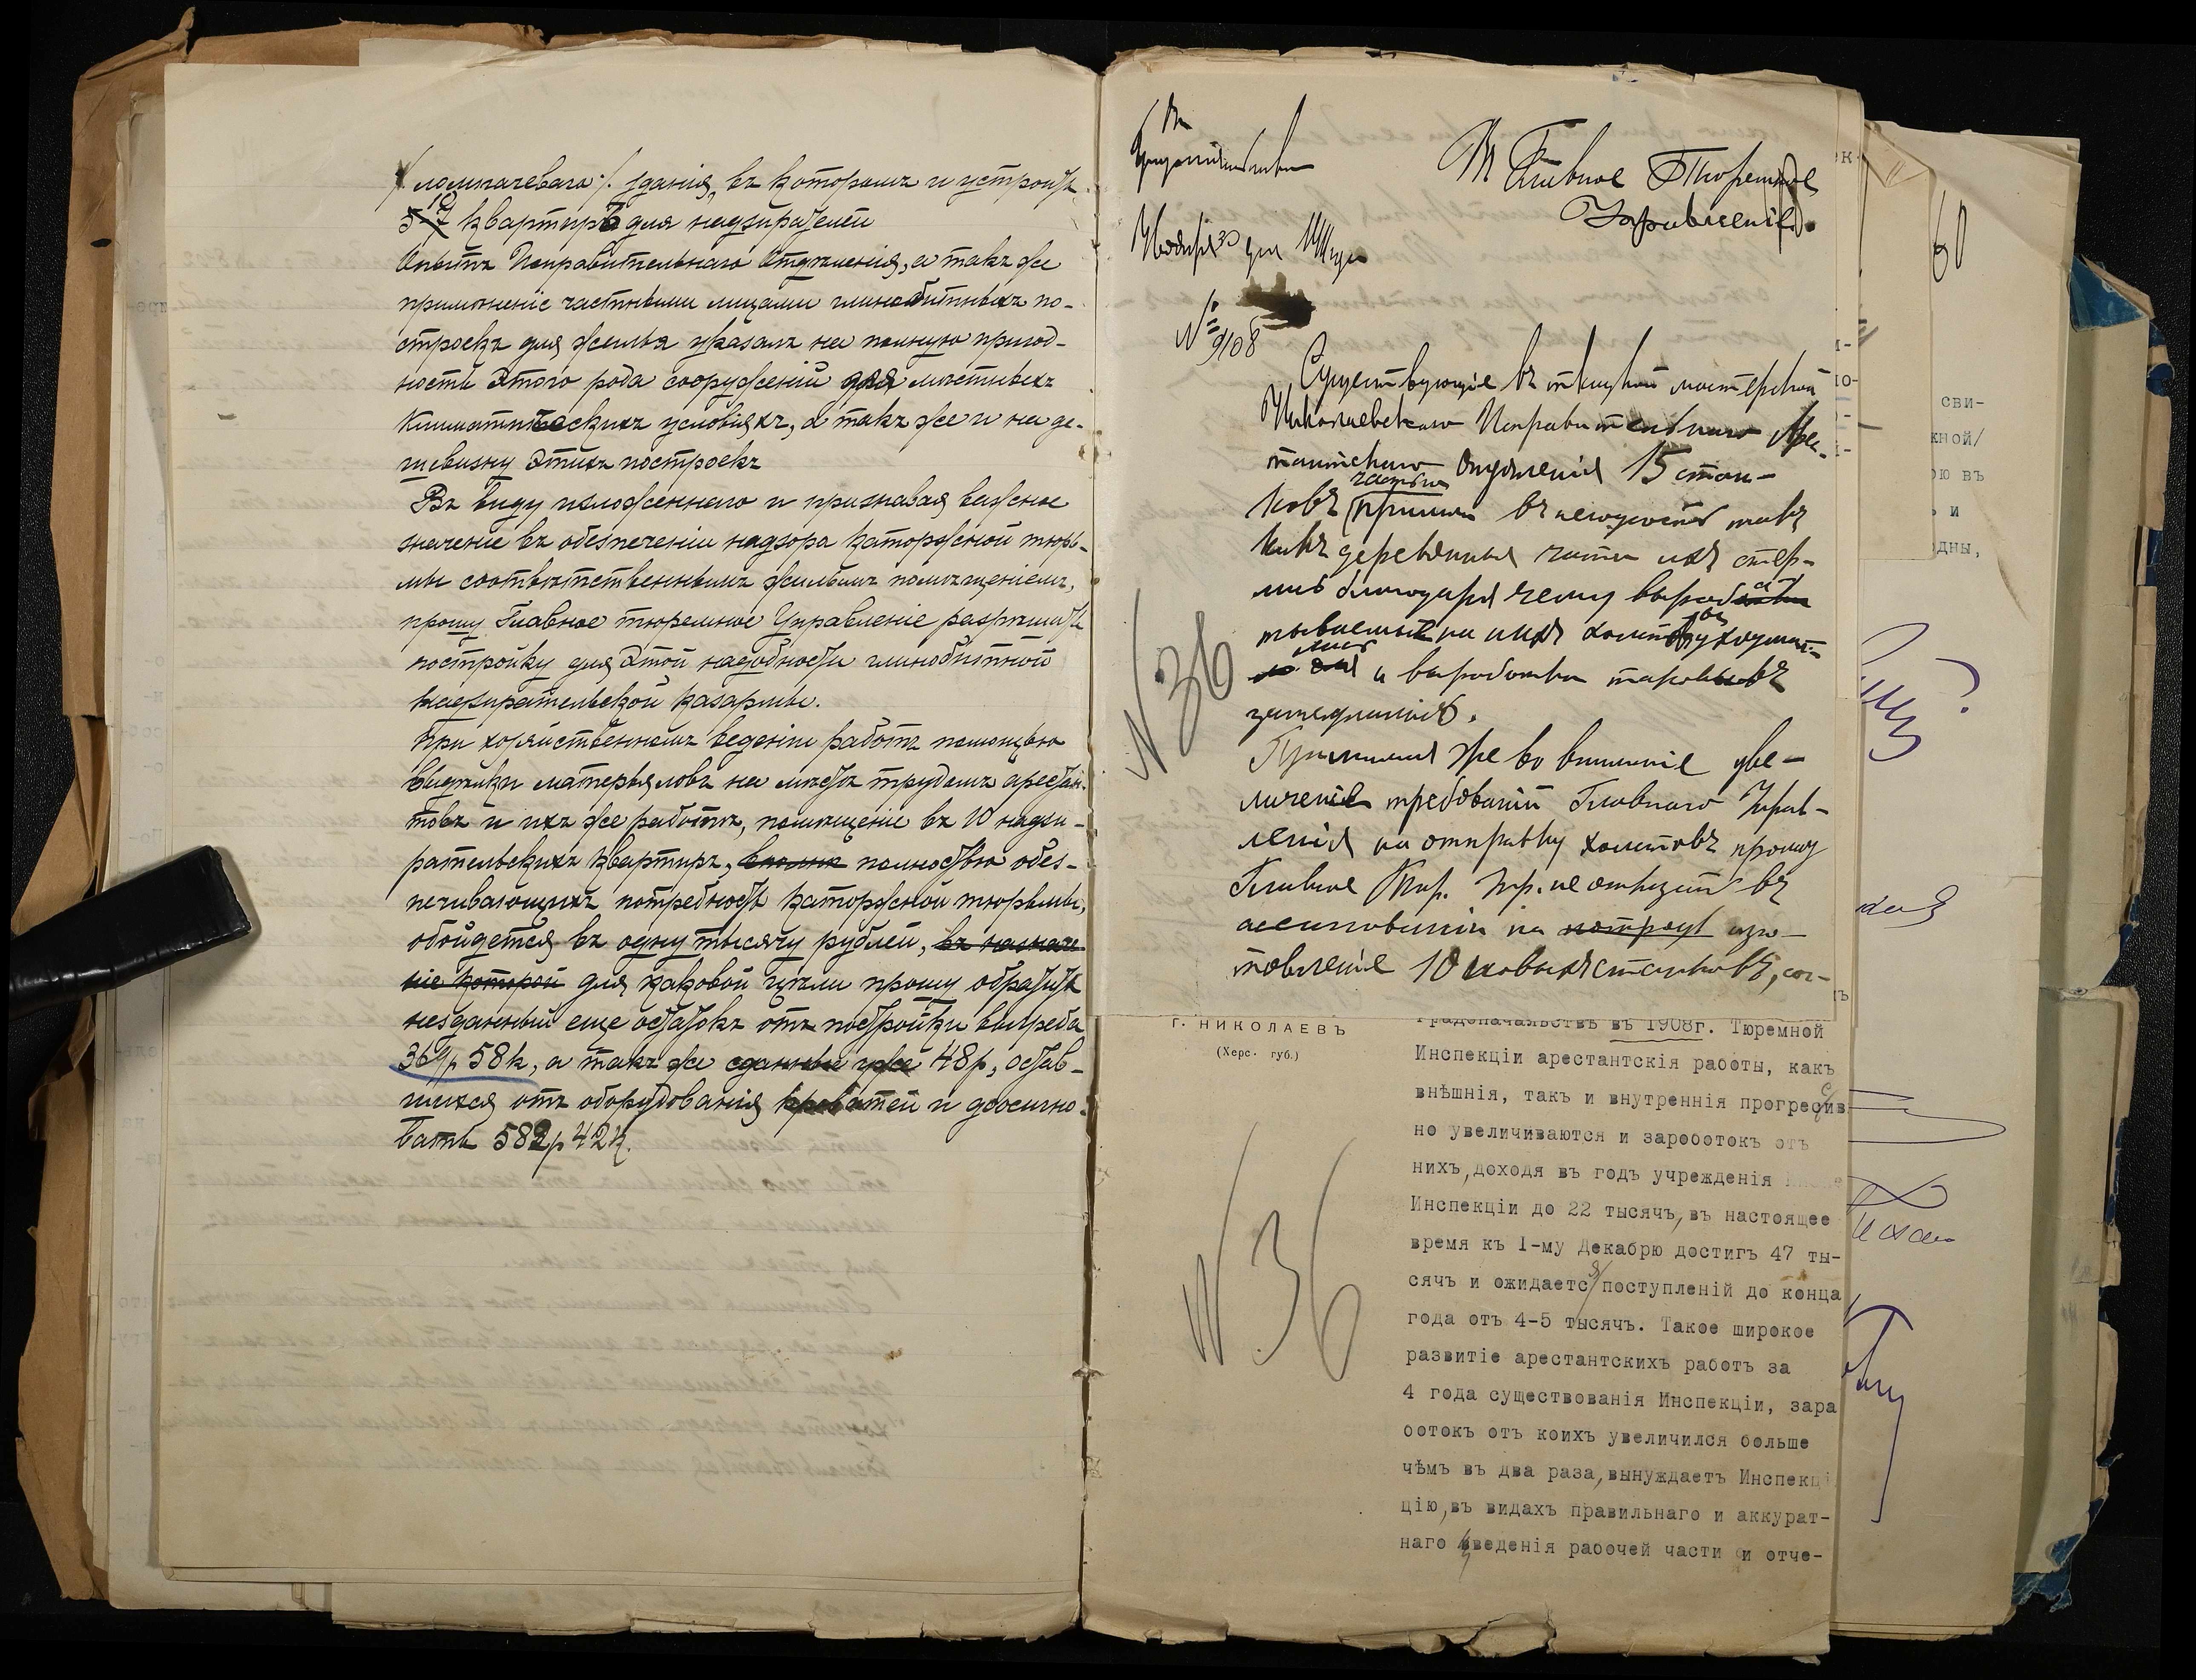 /. ломпачеваго ./. зданія, въ которомъ и устроить
10 квартиръ для надзирателей
Опытъ Исправительнаго Отдѣленія, а такъ же
примѣненіе частными лицами глинобитныхъ по-
строекъ для жилья указалъ на полную пригод-
ность этого рода сооруженій для мѣстныхъ
климатическихъ условіяхъ, а такъ же и на де-
шевизну этихъ построекъ
Въ виду изложеннаго и признавая важное
значеніе въ обезпеченіи надзора каторжной тюрь-
мы соотвѣтственнымъ жилымъ помѣщеніемъ,
прошу Главное тюремное Управленіе разрѣшить
постройку для этой надобности глинобитной
надзирательской казармы.
При хозяйственномъ веденіи работъ помощью
выдѣлки матерьяловъ на мѣстѣ трудомъ арестан-
товъ и ихъ же работѣ, помѣщеніе въ 10 надзи-
рательскихъ квартиръ, вполнѣ полностью обез-
печивающихъ потребность каторжной тюрьмы,
обойдется въ одну тысячу рублей, въ назначе
ніе которой для каковой цѣли прошу обратить
несданный еще остатокъ отъ постройки выгреба
369р 58к, а такъ же сданные уже 48р, остав-
шихся отъ оборудованія кроватей и доассигно-
вать 582р 42к.
Въ
Главное Тюремное
Управленіе.
№ 9108
Существующіе въ ткацкой мастерской
Николаевскаго Исправительнаго Арес-
тантскаго Отдѣленія 15 стан-
ковъ частью пришли въ негодность такъ
какъ деревянныя части ихъ стер-
лись благодаря чему вырабa-
тываемые на нихъ холсты
и выработка таковыхъ
замедлилась.
№ 36
Принимая же во вниманіе уве-
личеніе требованій Главнаго Управ-
ленія на отправку холстовъ прошу
Главное Тюр. Упр. не отказать въ
ассигнованіи на изго-
товленіе 10 новыхъ станковъ, сог-
г. НИКОЛАЕВЪ
(Херс. губ.)
№ 36
градоначальствѣ въ 1908г. Тюремной
Инспекціи арестантскія работы, какъ
внѣшнія, такъ и внутреннія прогресив
но увеличиваются и зароботокъ отъ
нихъ,доходя въ годъ учрежденія
Инспекціи до 22 тысячъ,въ настоящее
время къ 1-му Декабрю достигъ 47 ты-
сячъ и ожидаетс поступленій до конца
года отъ 4-5 тысячъ. Такое широкое
развитіе арестантскихъ работъ за
4 года существованія Инспекціи, зара
ботокъ отъ коихъ увеличился больше
чѣмъ въ два раза,вынуждаетъ Инспек
цію,въ видахъ правильнаго и аккурат-
наго введенія рабочей части и отче-
60
сви-
жной/
ою въ
и
дны,